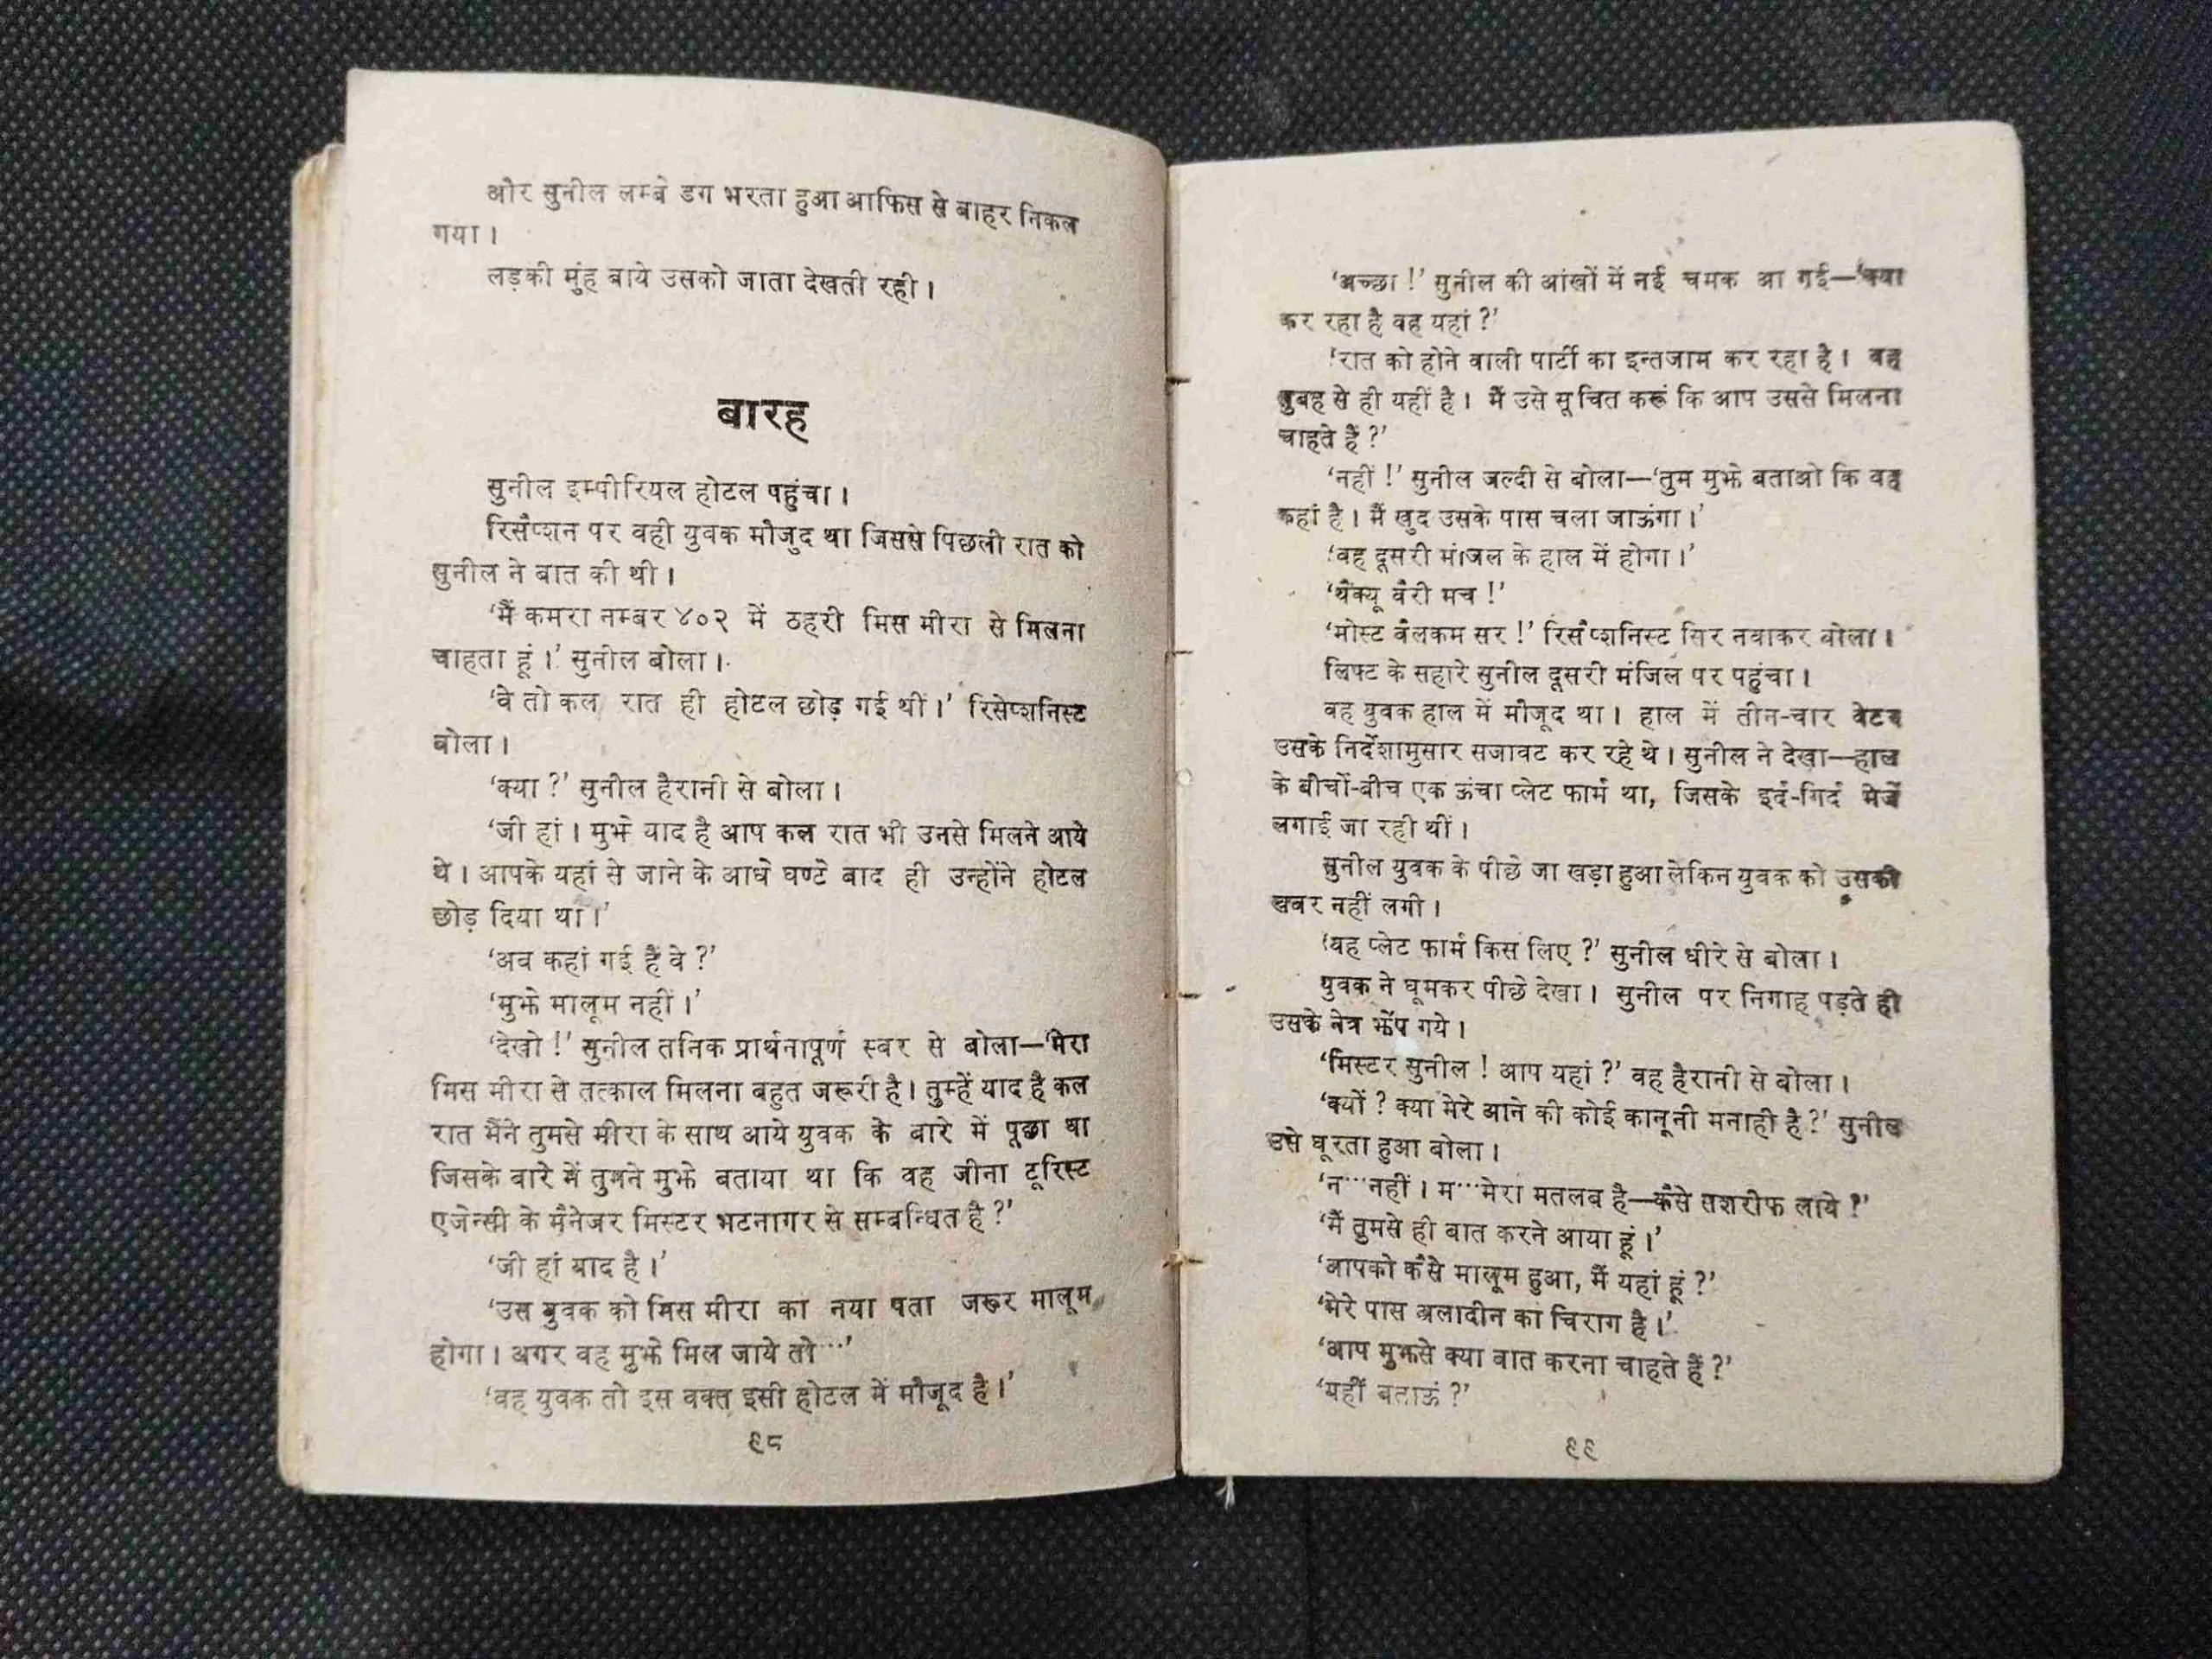 और सुनील लम्बे डग भरता हुआ आफिस से बाहर निकल
गया।
लड़की मुंह बाये उसको जाता देखती रही।
बारह
सुनील इम्पीरियल होटल पहुंचा।
रिसैप्शन पर वही युवक मौजुद था जिससे पिछली रात को
सुनील ने बात की थी।
‘मैं कमरा नम्बर ४०२ में ठहरी मिस मीरा से मिलना
चाहता हूं।’ सुनील बोला।
‘वे तो कल रात ही होटल छोड़ गई थीं।’ रिसेप्शनिस्ट
बोला।
‘क्या ?’ सुनील हैरानी से बोला।
‘जी हां। मुझे याद है आप कल रात भी उनसे मिलने आये
थे। आपके यहां से जाने के आधे घण्टे बाद ही उन्होंने होटल
छोड़ दिया था।’
‘अब कहां गई हैं वे ?’
‘मुझे मालूम नहीं।’
‘देखो !’ सुनील तनिक प्रार्थनापूर्ण स्वर से बोला—‘मेरा
मिस मीरा से तत्काल मिलना बहुत जरूरी है। तुम्हें याद है कल
रात मैंने तुमसे मीरा के साथ आये युवक के बारे में पूछा था
जिसके बारे में तुमने मुझे बताया था कि वह जीना टूरिस्ट
एजेन्सी के मैनेजर मिस्टर भटनागर से सम्बन्धित है ?’
‘जी हां याद है।’
‘उस युवक को मिस मीरा का नया पता जरूर मालूम
होगा। अगर वह मुझे मिल जाये तो···’
‘वह युवक तो इस वक्त इसी होटल में मौजूद है।’
९८
‘अच्छा !’ सुनील की आंखों में नई चमक आ गई—‘क्या
कर रहा है वह यहां ?’
‘रात को होने वाली पार्टी का इन्तजाम कर रहा है। वह
सुबह से ही यहीं है। मैं उसे सूचित करूं कि आप उससे मिलना
चाहते हैं ?’
‘नहीं !’ सुनील जल्दी से बोला—‘तुम मुझे बताओ कि वह
कहां है। मैं खुद उसके पास चला जाऊंगा।’
‘वह दूसरी मंजिल के हाल में होगा।’
‘थैंक्यू वैरी मच !’
‘मोस्ट वैलकम सर !’ रिसैप्शनिस्ट सिर नवाकर बोला।
लिफ्ट के सहारे सुनील दूसरी मंजिल पर पहुंचा।
वह युवक हाल में मौजूद था। हाल में तीन-चार वेटर
उसके निर्देशामुसार सजावट कर रहे थे। सुनील ने देखा—हाल
के बीचों-बीच एक ऊंचा प्लेट फार्म था, जिसके इर्द-गिर्द मेजें
लगाई जा रही थीं।
सुनील युवक के पीछे जा खड़ा हुआ लेकिन युवक को उसकी
खबर नहीं लगी।
‘यह प्लेट फार्म किस लिए ?’ सुनील धीरे से बोला।
युवक ने घूमकर पीछे देखा। सुनील पर निगाह पड़ते ही
उसके नेत्र झेंप गये।
‘मिस्टर सुनील ! आप यहां ?’ वह हैरानी से बोला।
‘क्यों ? क्या मेरे आने की कोई कानूनी मनाही है ?’ सुनील
उसे घूरता हुआ बोला।
‘न···नहीं। म···मेरा मतलब है—कैसे तशरीफ लाये ?’
‘मैं तुमसे ही बात करने आया हूं।’
‘आपको कैसे मालूम हुआ, मैं यहां हूं ?’
‘मेरे पास अलादीन का चिराग है।’
‘आप मुझसे क्या बात करना चाहते हैं ?’
‘यहीं बताऊं ?’
९९